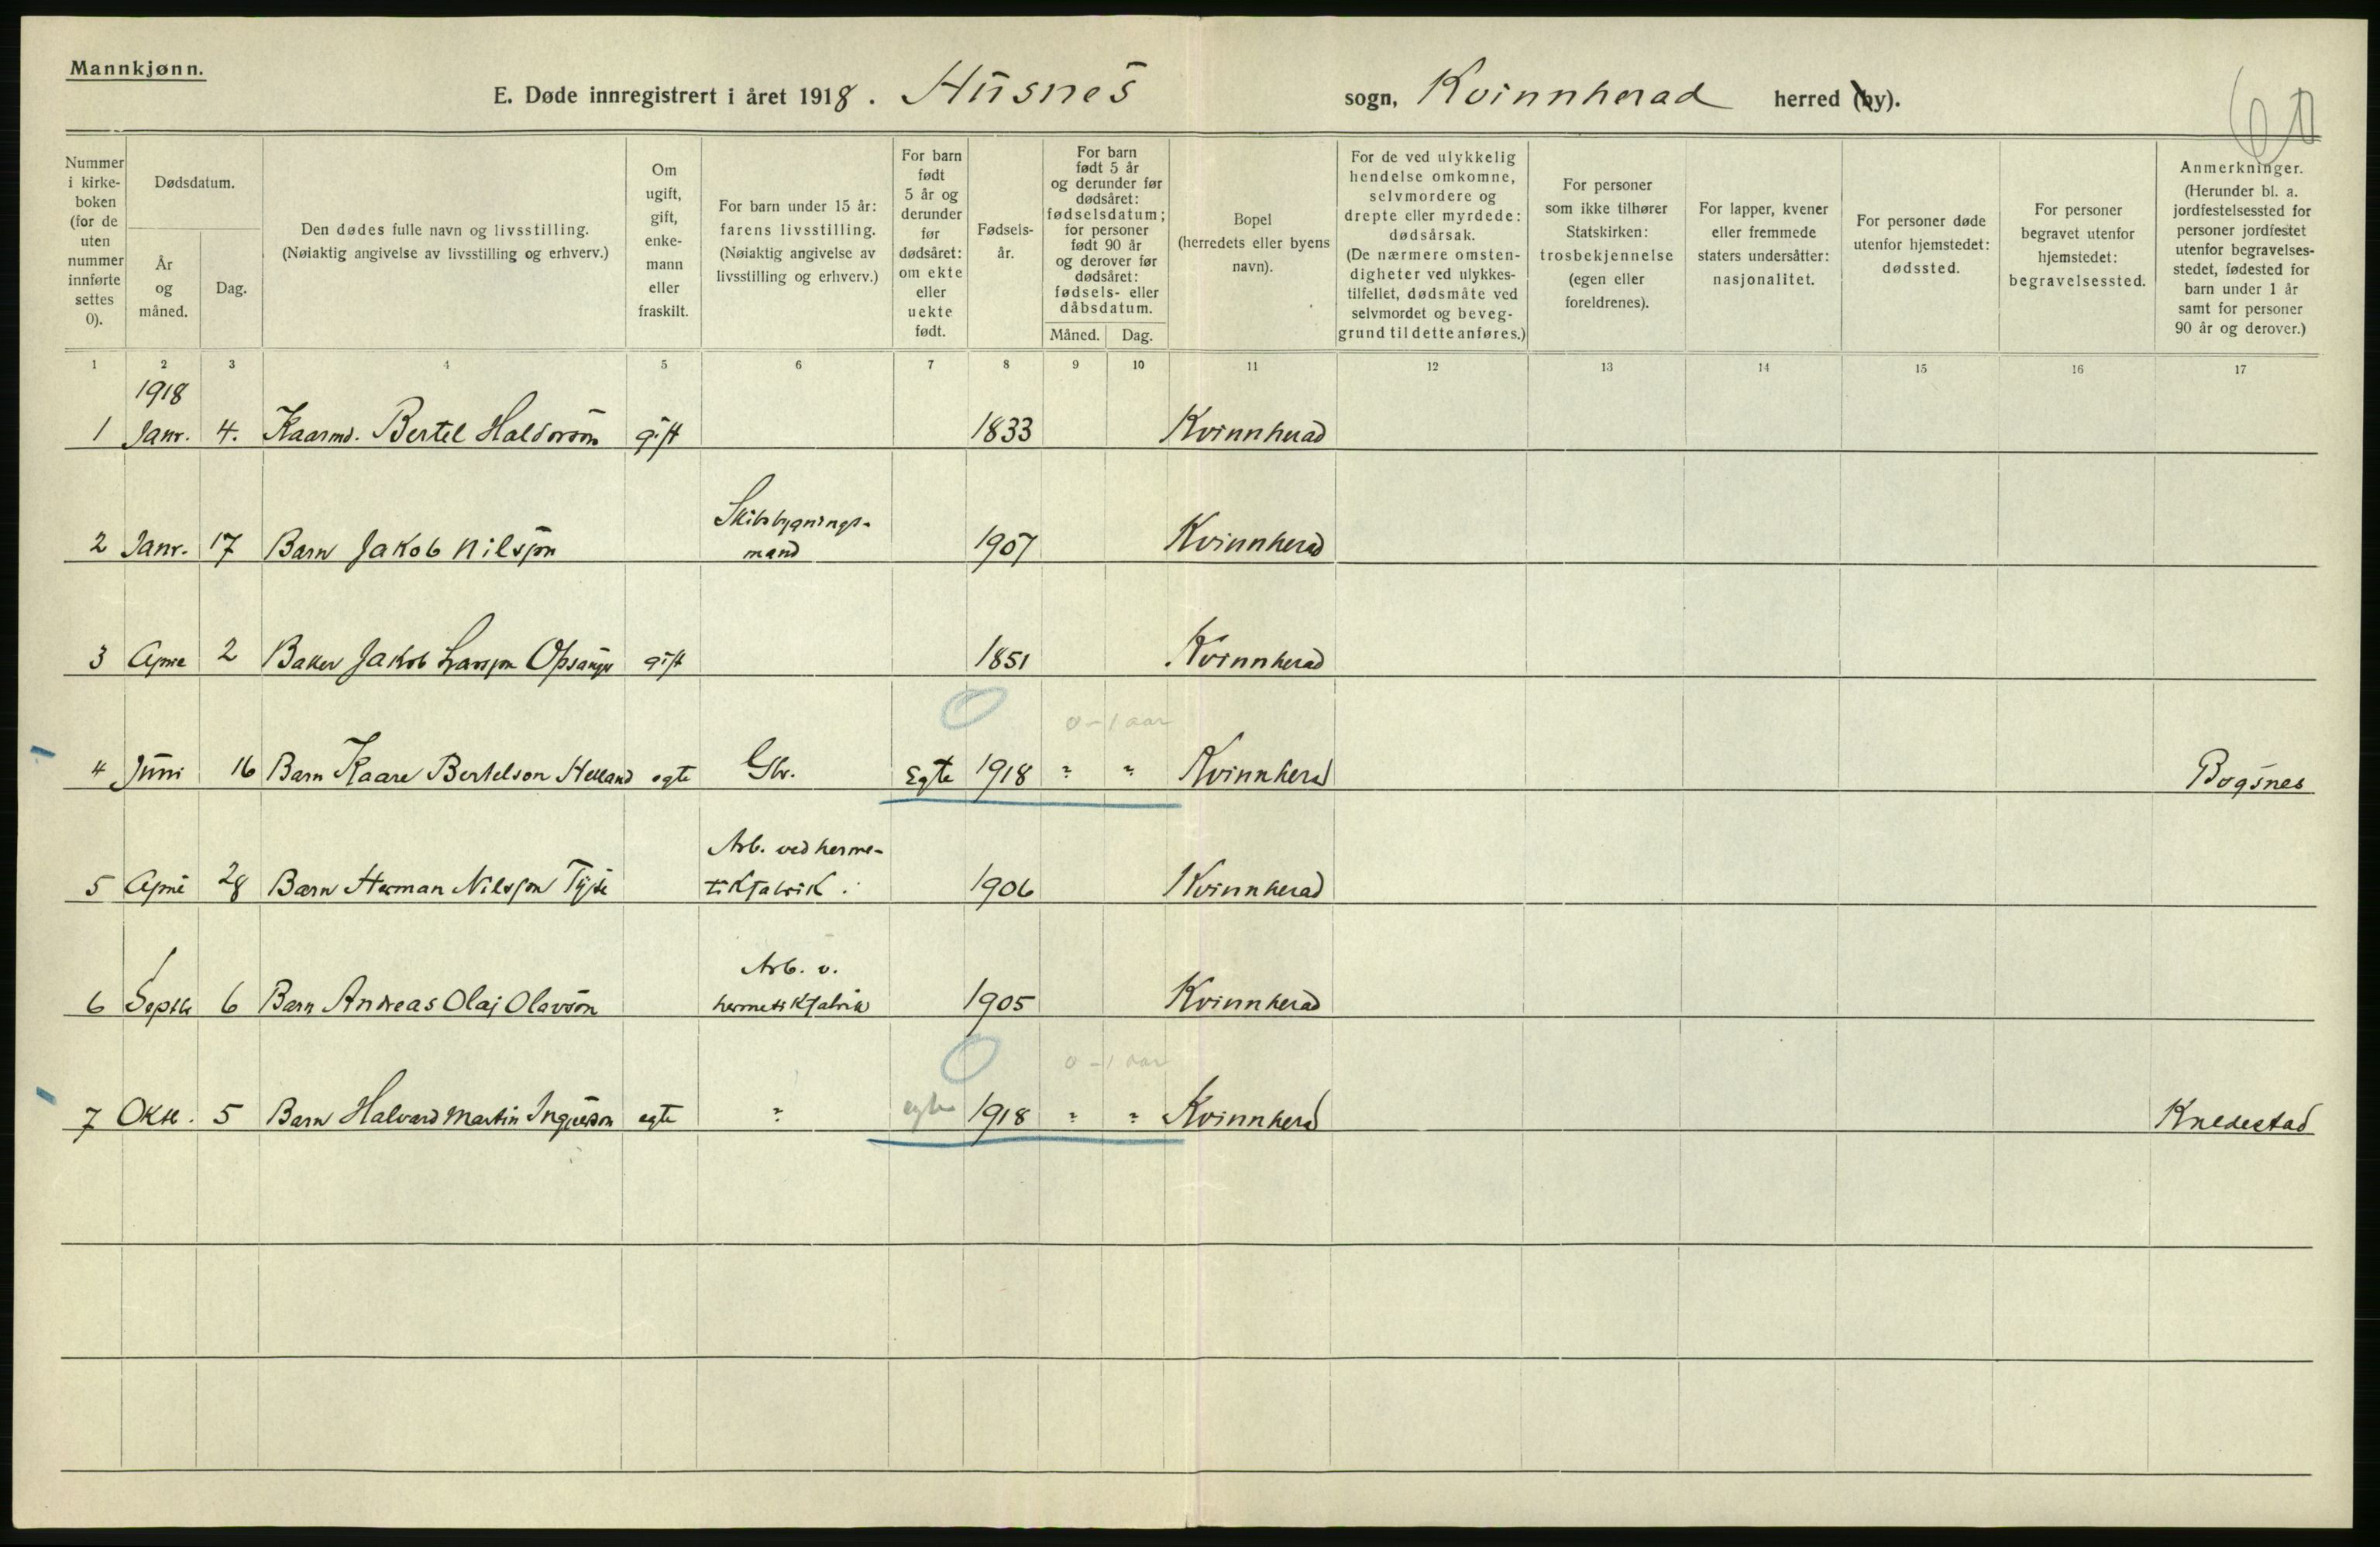 Mannkjønn.
E. Døde innregistrert i året 1918. Husnes sogn, Kvinnherad herred (by).
Nummer i kirke-boken (for de uten nummer innførte settes 0).
Dødsdatum.
År og måned.
Dag.
Den dødes fulle navn og livsstilling.
(Nøiaktig angivelse av livsstilling og erhverv.)
Om ugift, gift, enke-mann eller fraskilt.
For barn under 15 år: farens livsstilling.
(Nøiaktig angivelse av livsstilling og erhverv.)
For barn født 5 år og derunder før dødsåret: om ekte eller uekte født.
Fødsels-år.
For barn født 5 år og derunder før dødsåret: fødselsdatum; for personer født 90 år og derover før dødsåret: fødsels- eller dåbsdatum.
Måned. Dag.
Bopel (herredets eller byens navn).
For de ved ulykkelig hendelse omkomne, selvmordere og drepte eller myrdede: dødsårsak.
(De nærmere omsten-digheter ved ulykkes-tilfellet, dødsmåte ved selvmordet og beveg-grund til dette anføres.)
For personer som ikke tilhører Statskirken: trosbekjennelse (egen eller foreldrenes).
For lapper, kvener eller fremmede staters undersåtter: nasjonalitet.
For personer døde utenfor hjemstedet: dødssted.
For personer begravet utenfor hjemstedet: begravelsessted.
Anmerkninger.
(Herunder bl. a. jordfestelsessted for personer jordfestet utenfor begravelses-stedet, fødested for barn under 1 år samt for personer 90 år og derover.)
1 2 3 4 5 6 7 8 9 10 11 12 13 14 15 16 17
1918
1 Janr. 4. Kaarmd. Bertel Haldorson gift 1833 Kvinnherad
Skibsbygnings-
2 Janr. 17 Barn Jakob Nilsson mand 1907 Kvinnherad
3 2 Baker Jakob Larsson Opsanger gift 1851 Kvinnherad
0 0-1 aar
4 Juni 16 Barn Kaare Bertelson Helland egte Gbr. Egte 1918 " " Kvinnherad Bogsnes
Arb. ved herme-
5 28 Barn Herman Nilsson tikfabrik. 1906 Kvinnherad
Arb. v.
6 Septbr 6 Barn Andreas Olaf Olavson hermetikfabrik 1905 Kvinnherad
0 0-1 aar
7 Oktb. 5 Barn Halvard Martin egte " egte 1918 " " Kvinnherad